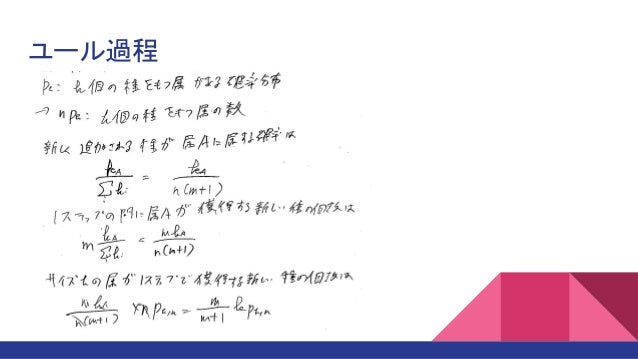 ユール過程
pk: k個の種をもつ属がある確率分布
→ npk: k個の種をもつ属の数
新しく追加される種が属Aに属する確率は
kA / Σi ki = kA / n(m+1)
1ステップの間に属Aが獲得する新しい種の個数は
m kA / Σki = m kA / n(m+1)
サイズkの属が1ステップで獲得する新しい種の個数は
m k / n(m+1) × n pk,n = m / m+1 k pk,n